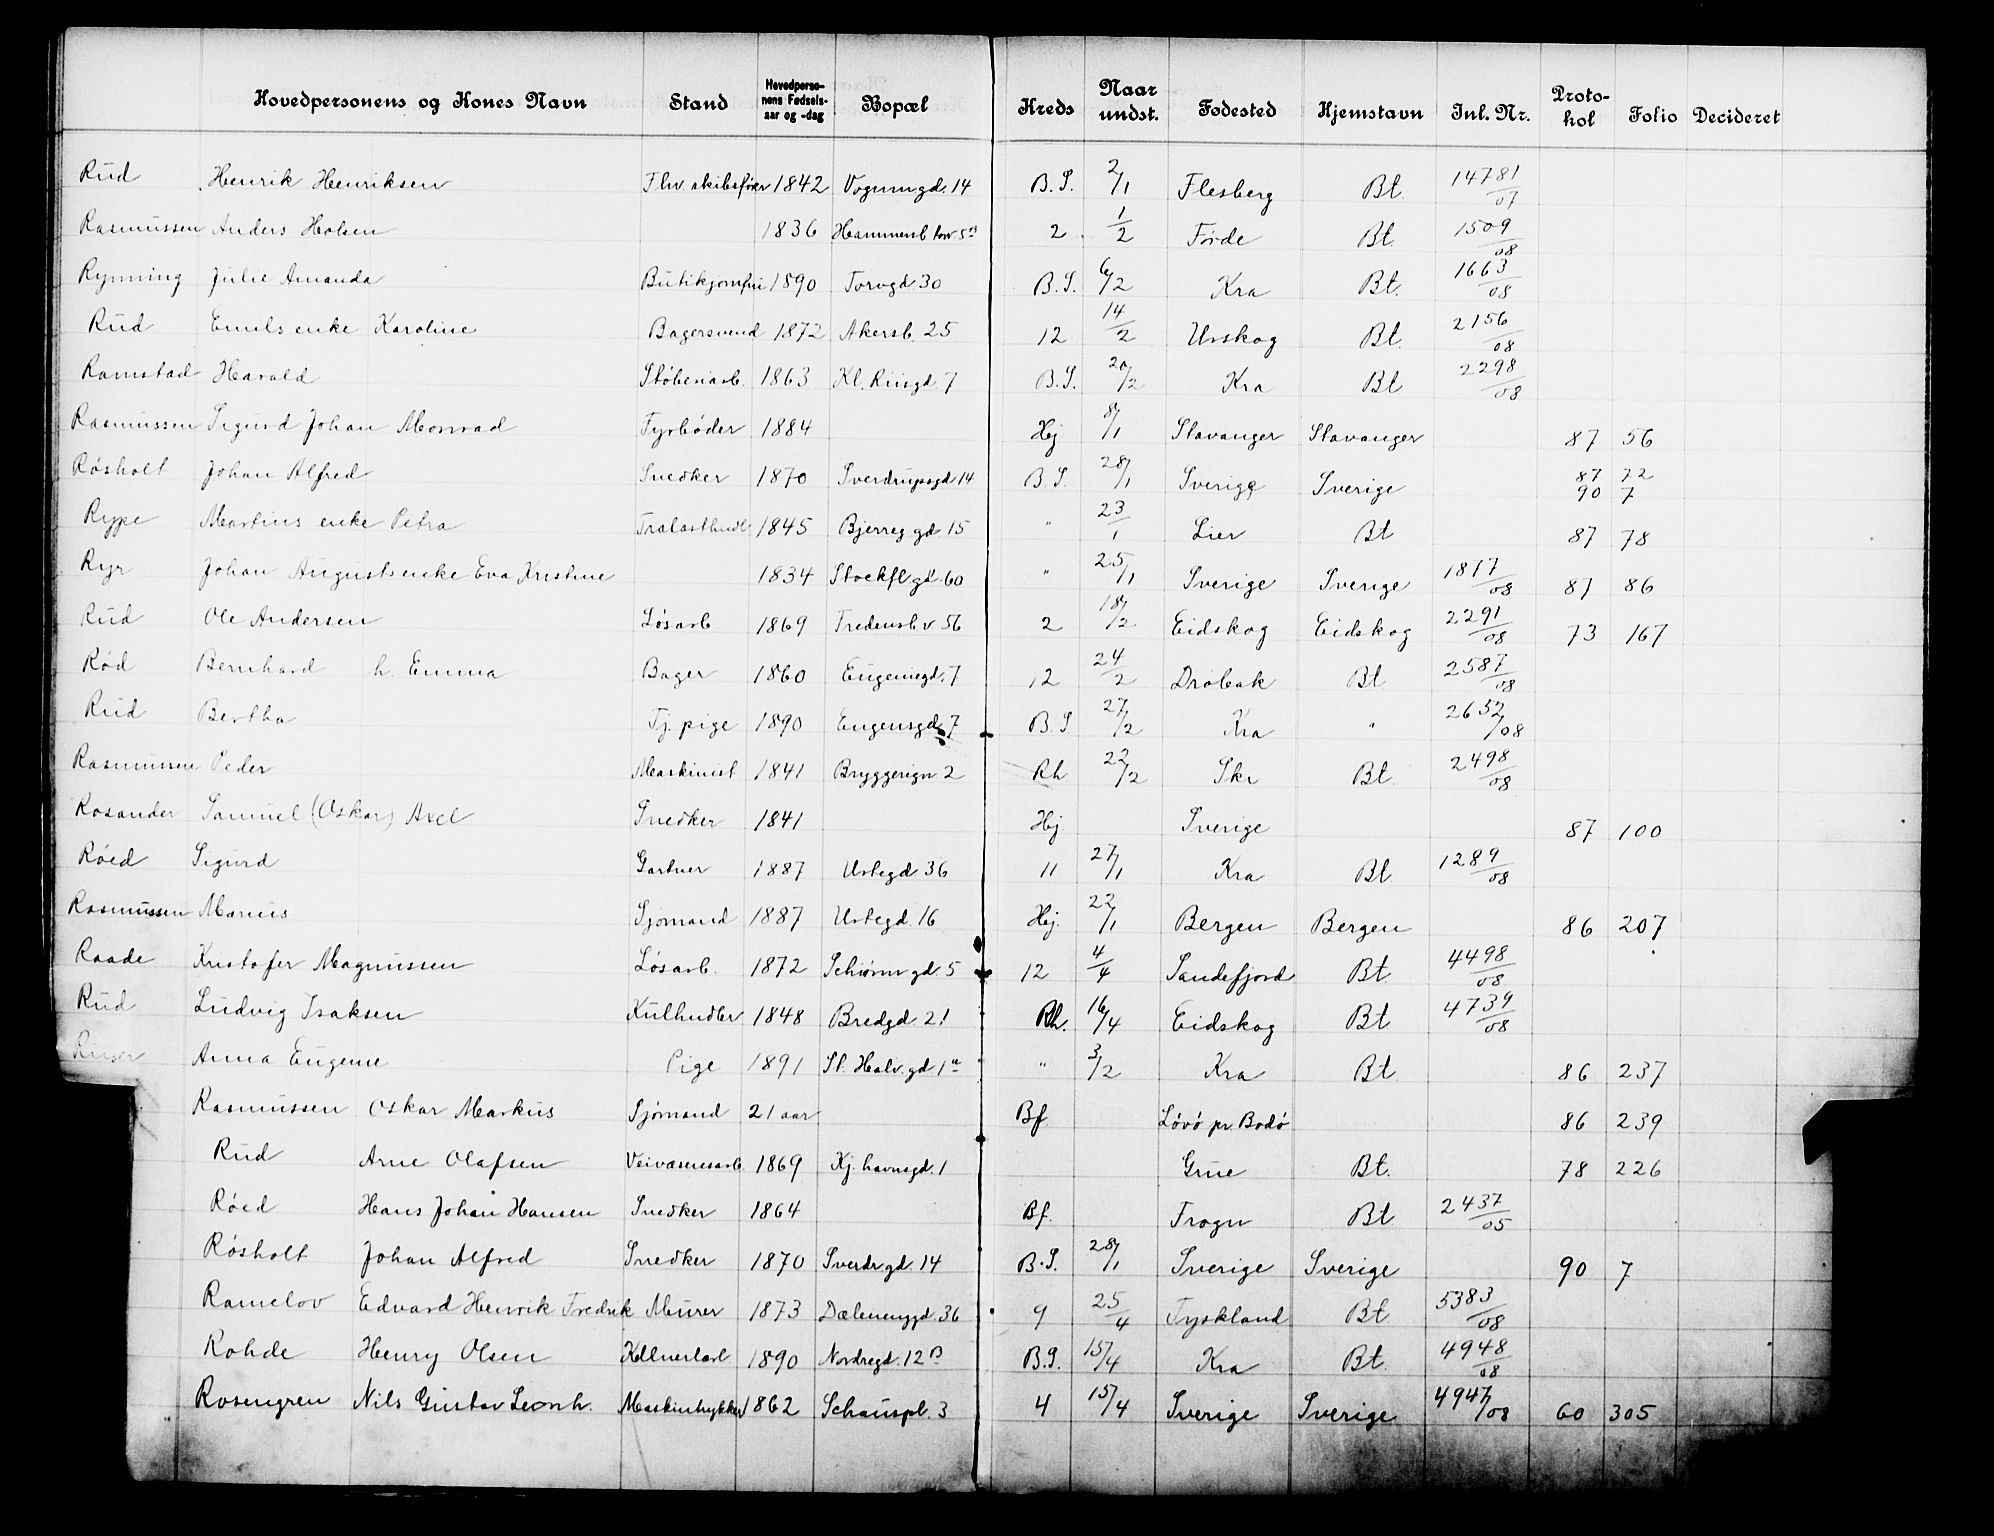 Hovedpersonens og Kones Navn Stand Hovedperso-nens Fødsels-aar og -dag Bopæl Kreds Naar undst. Fødested Hjemstavn Inl. Nr. Proto-kol Folio Decideret
Rud Henrik Henriksen Fhv. skibsfører 1842 Vognmgd. 14 B.S. 2/1 Flesberg Bt. 14781/07
Rasmussen Anders Holsen 1836 Hammersb torv 5 B 2 1/2 Førde Bt. 1509/08
Rynning Julie Amanda Butikjomfru 1890 Torvgd. 30 B.S. 6/2 Kra Bt. 1663/08
Rud Emils enke Karoline Bagersvend 1872 Akersb. 25 12 14/2 Urskog Bt. 2156/08
Ramstad Harald Støberiarb. 1863 Kl. Riisgd 7 B.S. 20/2 Kra Bt 2298/08
Rasmussen Sigurd Johan Monrad Fyrbøder 1884 Hej 8/1 Stavanger Stavanger 87 56
Røsholt Johan Alfred Snedker 1870 Sverdrupsgd 14 B.S. 28/1 Sverige Sverige 87 72
90 7
Rype Martins enke Petra Tralasthndl. 1845 Bjerreg gd 15 " 23/1 Lier Bt 87 78
Ryr Johan Augusts enke Eva Kristine 1834 Stockfl. gd. 60 " 25/1 Sverige Sverige 1877/08 87 86
Rud Ole Andersen Løsarb 1869 Fredensb v. 56 2 18/2 Eidskog Eidskog 2291/08 73 167
Rød Bernhard h. Emma Bager 1860 Eugeniegd. 7 12 24/2 Drøbak Bt 2587/08
Rud Bertha Tj. pige 1890 Eugensgd. 7 B.S 27/2 Kra " 2652/08
Rasmussen Peder Maskinist 1841 Bryggerign 2 Rh. 22/2 Ski Bt. 2498/08
Rosander Samuel (Oskar) Axel Snedker 1841 Hej Sverige 87 100
Røed Sigurd Gartner 1887 Ustegd 36 11 27/1 Kra Bt. 1289/08
Rasmussen Marius Sjømand 1887 Ustegd. 16 Hej. 22/1 Bergen Bergen 86 207
Raade Kristofer Magnussen Løsarb. 1872 Schiørnr gd 5 12 4/4 Sandefjord Bt. 4498/08
Rud Ludvig Isaksen Kulhndler 1848 Bredgd. 21 Rh. 16/4 Eidskog Bt 4739/08
Anna Eugenie Pige 1891 St. Halv. gd 1 a " 3/2 Kra Bt 86 237
Rasmussen Oskar Markus Sjømand 21 aar Bf Løvø pr. Bodø 86 239
Rud Arne Olafsen Veivæsensarb. 1869 Kj. havnsgd. 1 Grue Bt. 78 226
Røed Hans Johan Hansen Snedker 1864 Bf. Frogn Bt 2437/05
Røsholt Johan Alfred Snedker 1870 Sverdr gd. 14 B.S. 28/1 Sverige Sverige 90 7
Ramelov Edvard Henrik Fredrik Murer 1873 Dælenenggd. 36 9 25/4 Tyskland Bt 5383/08
Rohde Henry Olsen Kellnerlærl. 1890 Nordregd. 12 B B.S. 15/4 Kra Bt. 4948/08
Rosengren Nils Gustav Leonh. Maskintrykker 1862 Schouspl. 3 4 15/4 Sverige Sverige 4947/08 60 305